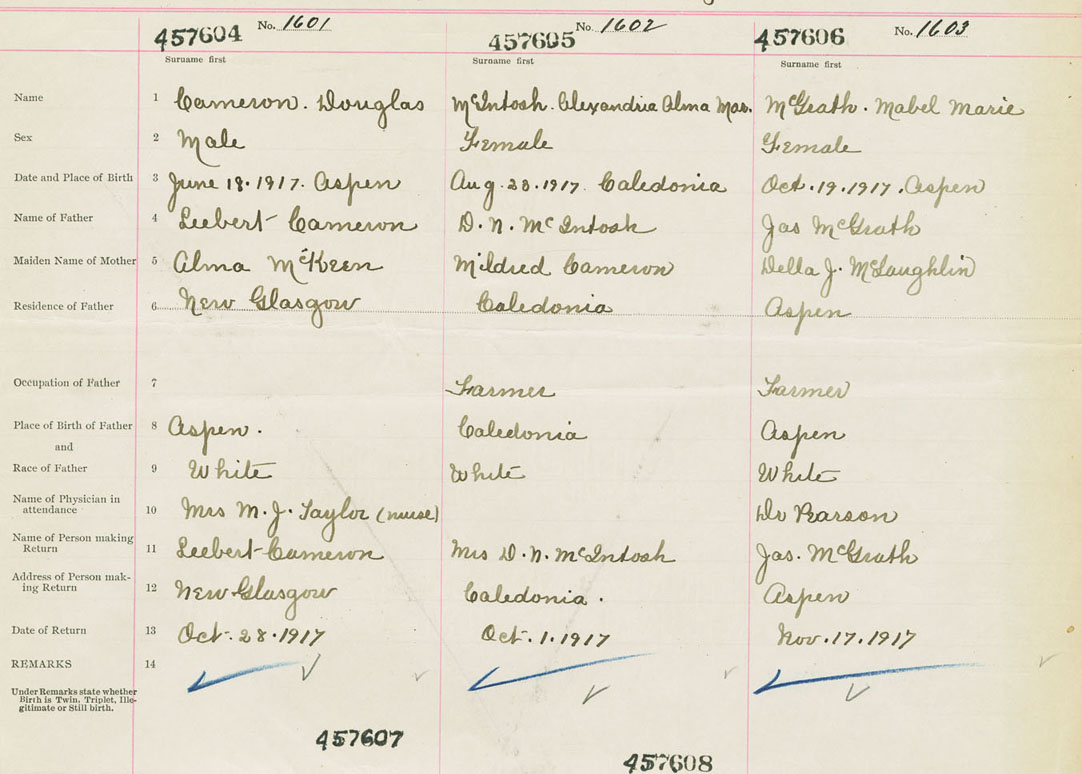 457604 No. 1601 457605 No. 1602 457606 No. 1603
Surname first Surname first Surname first
Name 1 Cameron. Douglas McIntosh. Alexandria Alma Mae. McGrath. Mabel Marie
Sex 2 Male Female Female
Date and Place of Birth 3 June 18.1917. Aspen Aug. 28.1917. Caledonia Oct. 19.1917. Aspen
Name of Father 4 Leebert Cameron D. N. McIntosh Jas McGrath
Maiden Name of Mother 5 Alma McKeen Mildred Cameron Della J. McLaughlin
Residence of Father 6 New Glasgow Caledonia Aspen
Occupation of Father 7 Farmer Farmer
Place of Birth of Father 8 Aspen. Caledonia Aspen
and
Race of Father 9 White White White
Name of Physician in
attendance 10 Mrs M. J. Taylor (nurse) Dr Pearson
Name of Person making
Return 11 Leebert Cameron Mrs D. N. McIntosh Jas. McGrath
Address of Person mak-
ing Return 12 New Glasgow Caledonia. Aspen
Date of Return 13 Oct. 28.1917 Oct. 1.1917 Nov. 17.1917
REMARKS 14
Under Remarks state whether
Birth is Twin, Triplet, Ille-
gitimate or Still birth.
457607
457608